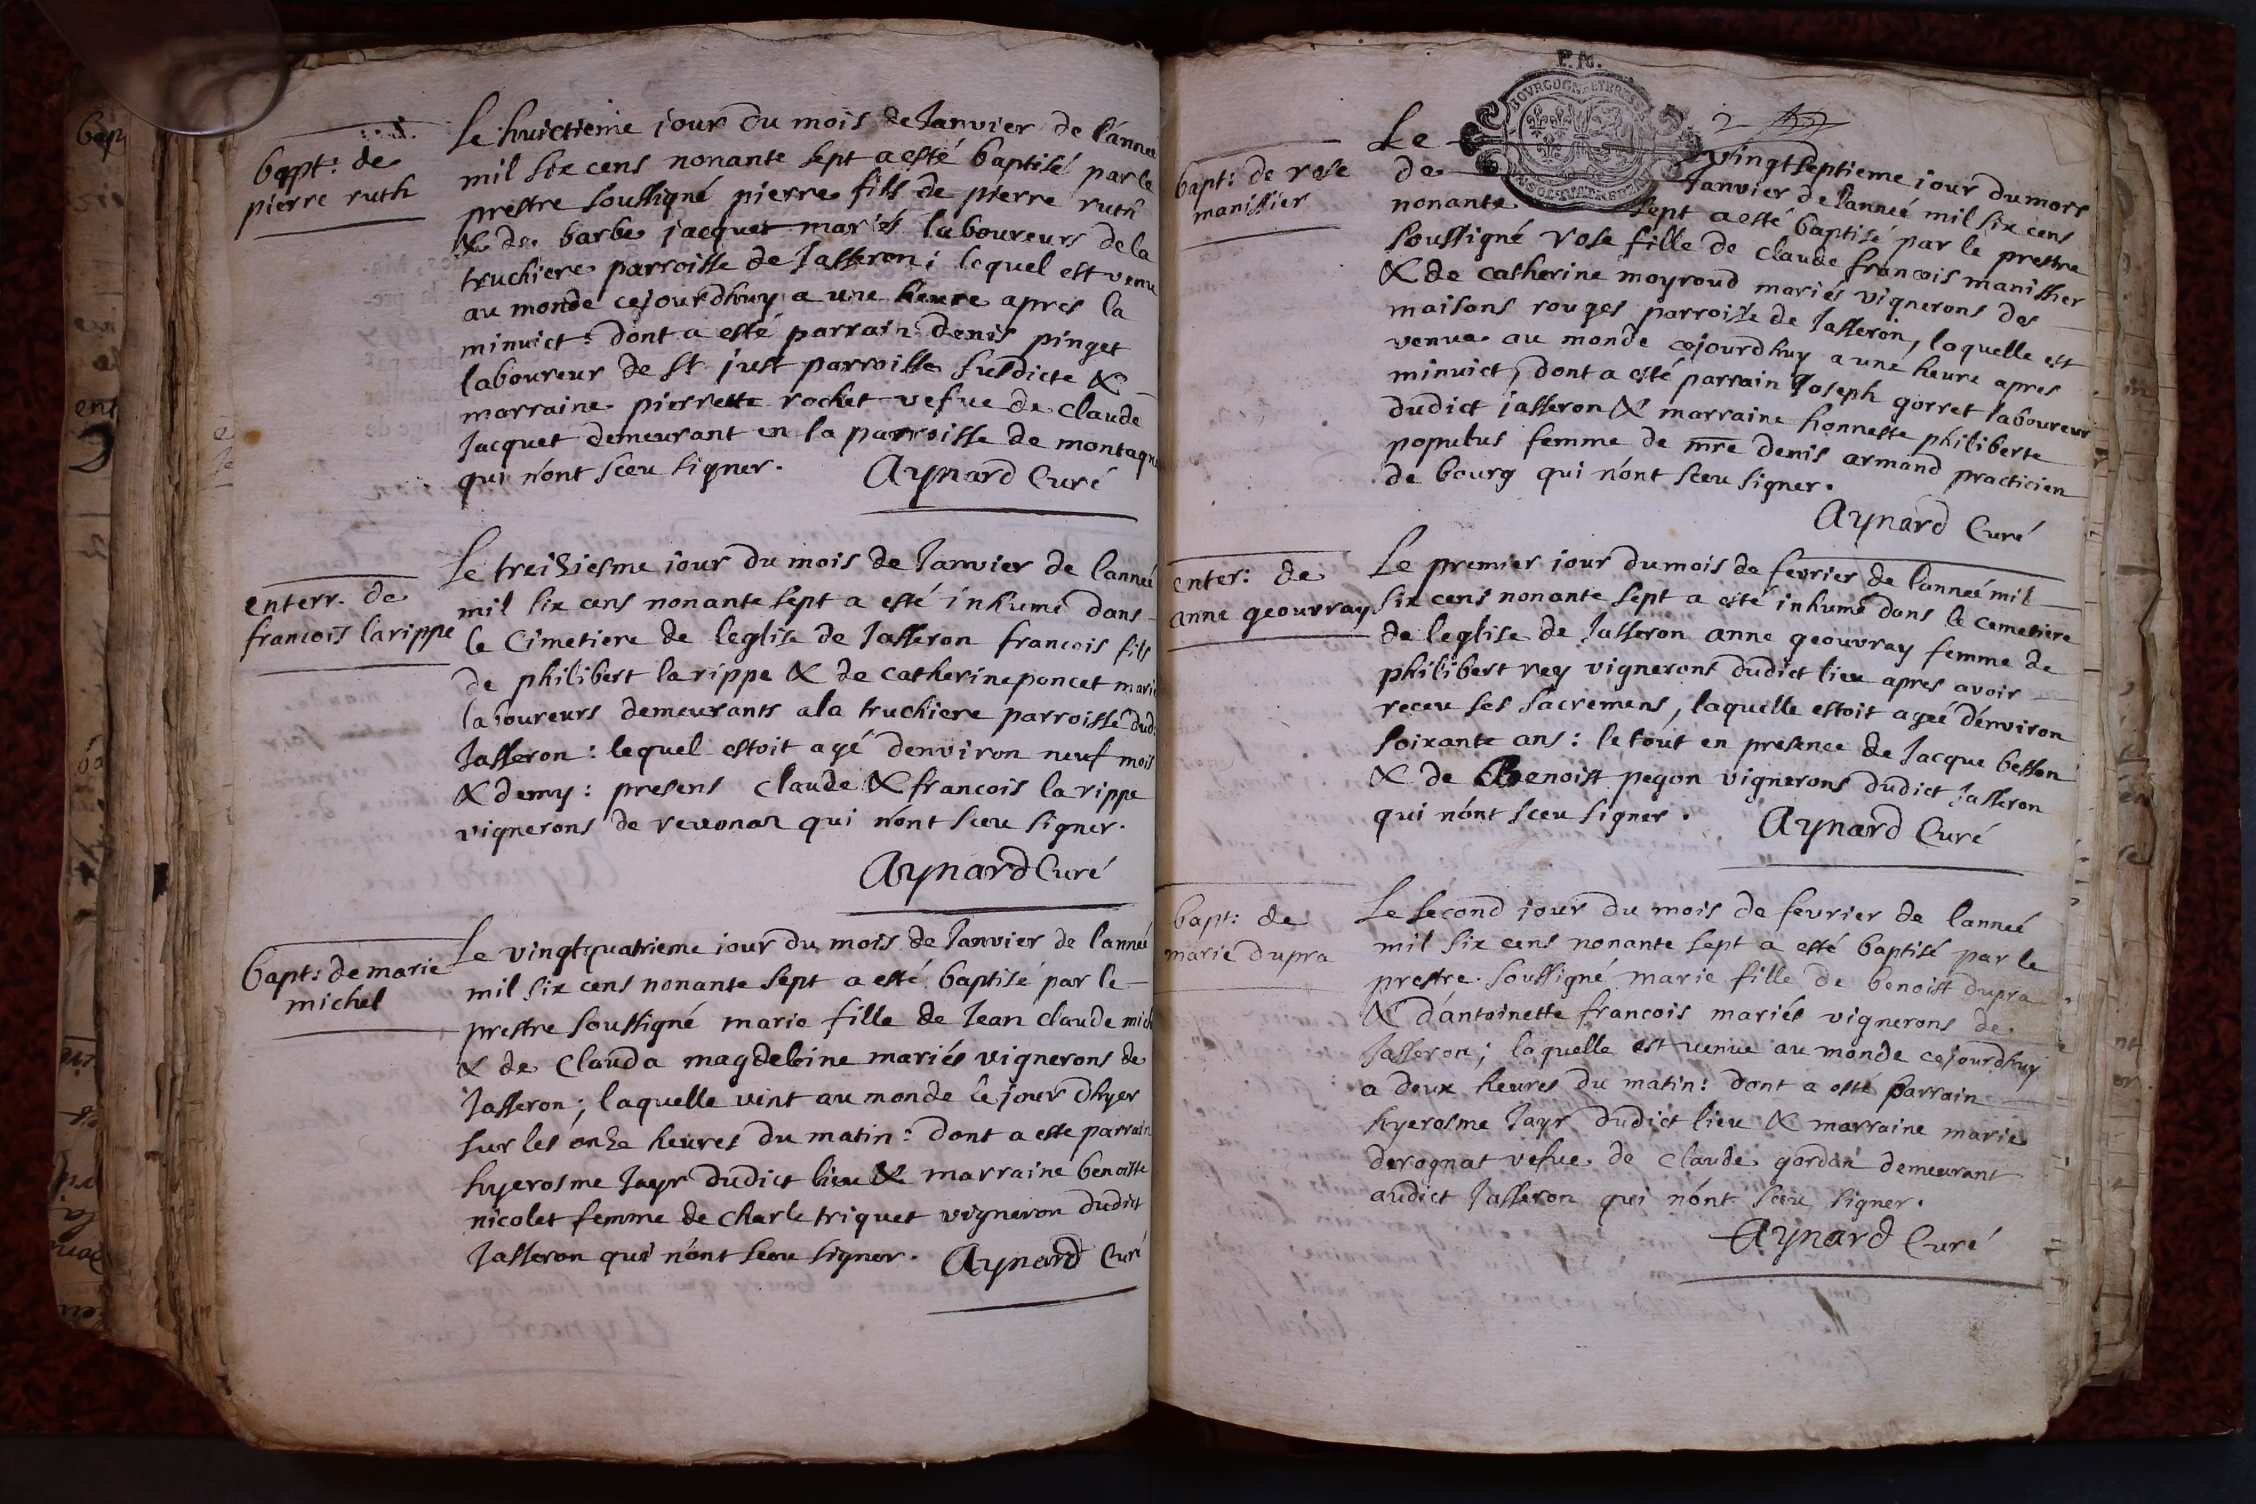 bapt: de
pierre ruth
Le huictieme jour du mois de Janvier de l'année
mil six cens nonante sept a esté baptisé par le
prestre soussigné pierre fils de pierre ruth
& de barbe jacquet mariés laboureurs de la
truchiere parroisse de Jasseron; lequel est venu
au monde cejourdhuy a une heure apres la
minuict: dont a esté parrain Denis pinget
laboureur de st just parroisse susdicte &
marraine pierrette rochet vefue de claude
Jacquet demeurant en la parroisse de montagn
qui n'ont sceu signer. Aynard Curé
enterr. de
francois larippe
Le treiziesme jour du mois de Janvier de l'anneé
mil six cens nonante sept a esté inhumé dans
le Cimetiere de leglise de Jasseron francois fils
de philibert larippe & de catherine poncet marié
laboureurs demeurants a la truchiere parroisse dud:
Jasseron: lequel estoit agé denviron neuf mois
& demy: presens claude & francois la rippe
vignerons de revonas qui n'ont sceu signer.
Aynard Curé
bapt: de marie
michel
Le vingtquatrieme jour du mois de Janvier de l'anneé
mil six cens nonante sept a esté baptisé par le
prestre soussigné marie fille de Jean claude mich
& de Clauda magdeleine mariés vignerons de
Jasseron; laquelle vint au monde le jour d'hyer
sur les onze heures du matin: dont a este parrain
hyerosme Jayr dudict lieu & marraine benoiste
nicolet femme de charle triquet vigneron dudict
Jasseron qui n'ont sceu signer. Aynard Curé
P. M.
BOURGOGN. ET BRESSE
2
bapt: de rose
manissier
Le vingtseptieme jour du mois
de Janvier de l'anneé mil six cens
nonante sept a esté baptisé par le prestre
soussigné rose fille de claude francois manissier
& de catherine moyroud mariés vignerons des
maisons rouges parroisse de Jasseron, laquelle est
venue au monde cejourdhuy a une heure apres
minuict, dont a esté parrain Joseph gorret laboureur
dudict jasseron & marraine honneste philiberte
populus femme de mre denis armand practicien
de bourg qui n'ont sceu signer.
Aynard Curé
enter: de
anne geouvray
Le premier jour du mois de fevrier de l'anneé mil
six cens nonante sept a esté inhumé dans le cemetiere
de leglise de Jasseron anne geouvray femme de
philibert rey vignerons dudict lieu apres avoir
receu ses sacremens, laquelle estoit ageé d'environ
soixante ans: le tout en presence de Jacque besson
& de Benoist pegon vignerons dudict Jasseron
qui n'ont sceu signer. Aynard Curé
bapt: de
marie dupra
Le second jour du mois de fevrier de l'anneé
mil six cens nonante sept a esté baptisé par le
prestre soussigné marie fille de benoist dupra
& d'antoinette francois mariés vignerons de
Jasseron; laquelle est venue au monde cejourdhuy
a deux heures du matin: dont a esté parrain
hyerosme Jayr dudict lieu & marraine marie
derognat vefue de claude gordan demeurant
audict Jasseron qui n'ont sceu signer.
Aynard Curé